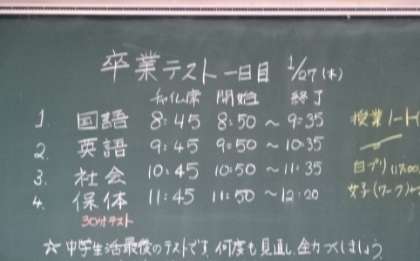 卒業テスト一日目 1/27(木)
着席 開始 終了
1. 国語 8:45 8:50 ～ 9:35 授業ノート
2. 英語 9:45 9:50 ～ 10:35
3. 社会 10:45 10:50 ～ 11:35
4. 保体 11:45 11:50 ～ 12:20
30分テスト
☆中学生活最後のテストです。何度も見直し全力でつくしましょう